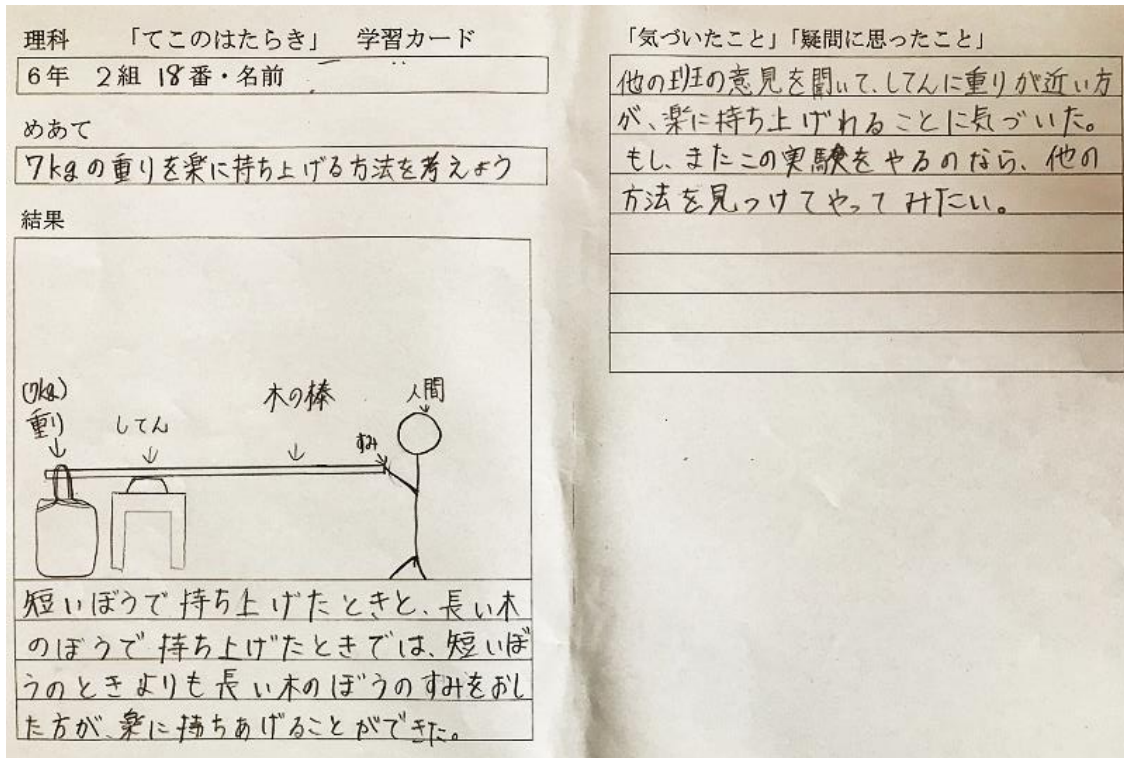 理科　「てこのはたらき」　学習カード
6年　2組 18番・名前
めあて
7kgの重りを楽に持ち上げる方法を考えよう
結果
(7kg)
重り
してん
木の棒
人間
すみ
短いぼうで持ち上げたときと、長い木
のぼうで持ち上げたときでは、短いぼ
うのときよりも長い木のぼうのすみをおし
た方が、楽に持ちあげることができた。
「気づいたこと」「疑問に思ったこと」
他の班の意見を聞いて、してんに重りが近い方
が、楽に持ち上げれることに気づいた。
もし、またこの実験をやるのなら、他の
方法を見つけてやってみたい。